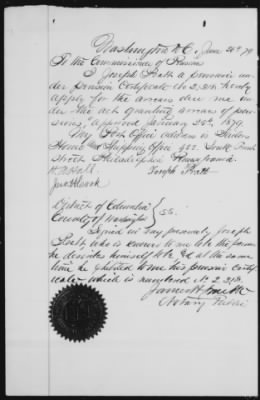 Washington D.C. June 20th 79
To the Commissioner of Pension
I Joseph Pratt a pensioner un-
der pension Certificate No 2,313, hereby
apply for the arrears due me un-
der the act granting arrears of pen-
sions, approved January 25th, 1879.
My Post Office address is Sailors
Home and Shipping Office 422 South Front
street Philadelphia Pennsylvania.
Joseph Pratt
District of Columbia } SS.
County of Washington
Signed in my presence by Joseph
Pratt, who is known to me to be the person
he describes himself to be & at the same
time he exhibited to me his pension certifi-
cate which is numbered No 2,313.
James H. Smith
Notary Public